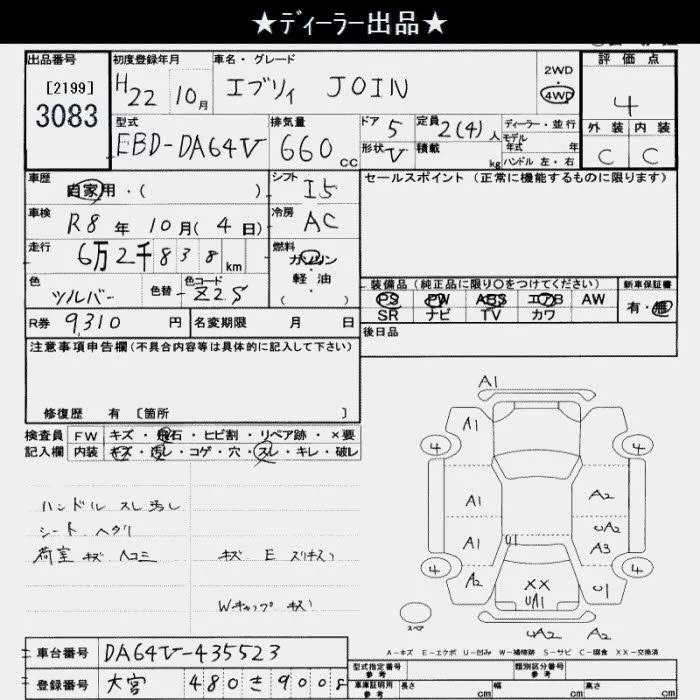 ★ディーラー出品★
出品番号 初度登録年月 車名・グレード 評価点
[2199] H22 10月 エブリィ JOIN 2WD 4WD 4
3083 型式 排気量 ドア 5 定員 2(4)人 ディーラー・並行 外装 内装
モデル年式 年
EBD-DA64V 660cc 形状 V 積載 kg ハンドル 左・右 C C
車歴 自家用・( ) シフト I5 セールスポイント (正常に機能するものに限ります)
車検 R8年 10月(4日) 冷房 AC
走行 6万2千838km 燃料 ガソリン
軽油
( )
色 シルバー 色替 色コード Z2S 装備品 (純正品に限り○をつけてください) 新車保証書
PS PW ABS エアB AW 有・無
SR ナビ TV カワ
R券 9,310円 名変期限 月 日 後日品
注意事項申告欄 (不具合内容等は具体的に記入して下さい)
修復歴 有 〔箇所 〕
検査員 FW キズ・飛石・ヒビ割・リペア跡・×要
記入欄 内装 キズ・汚レ・コゲ・穴・スレ・キレ・破レ
ハンドル スレ 汚レ
シート ヘタリ
荷室 キズ ヘコミ キズ E スリキズ
Wキャップ キズ
A1
A1
4 4
A1 A2
UA2
A1 U1 A3
4 4
A2 XX U1
UA1
スペア UA2 A2
A-キズ E-エクボ U-凹み W-補修跡 S-サビ C-腐食 XX-交換済
車台番号 DA64V-435523 型式指定番号 参考 類別区分番号 参考
登録番号 大宮 480 さ 9008 車庫証明用 参考 長さ cm 幅 cm 高さ cm